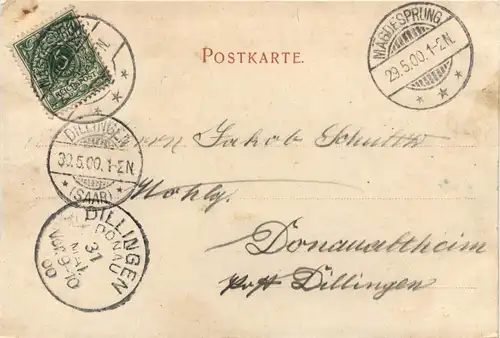 POSTKARTE.
MÄGDESPRUNG
29.5.00.1-2N.
DILLINGEN
30.5.00.1-2N.
(SAAR)
DILLINGEN
DONAU
31
MAI
Vor 9-10
00
Herrn Jakob
Wohlg.
Donaualtheim
Post Dillingen